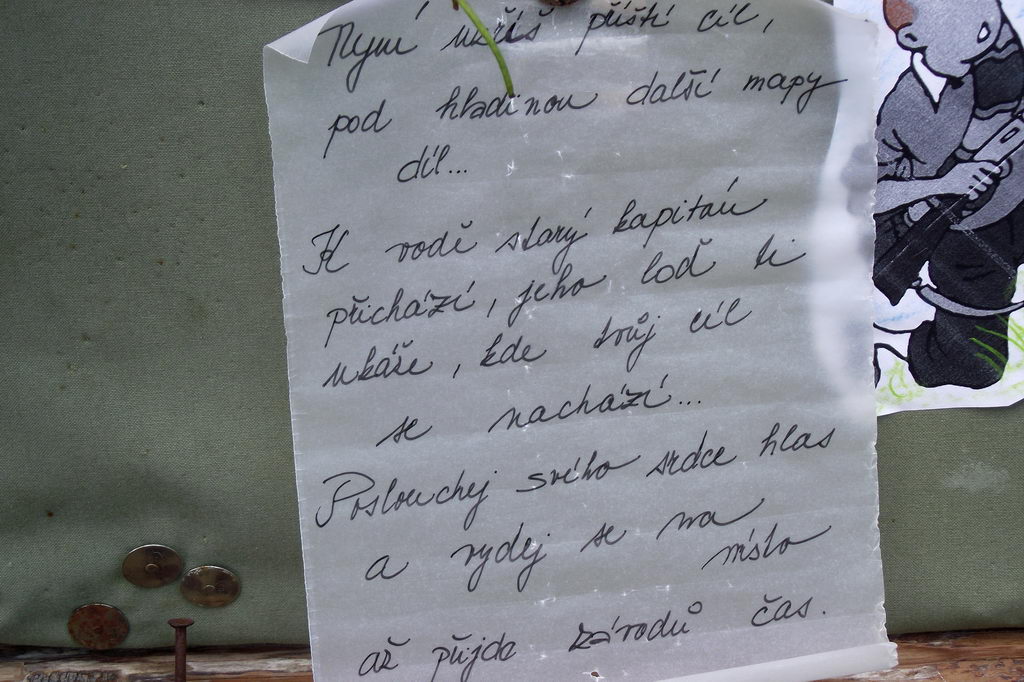 Nyní uzříš příští cíl,
pod hladinou další mapy
díl...
K vodě starý kapitán
přichází, jeho loď ti
ukáže, kde tvůj cíl
se nachází...
Poslouchej svého srdce hlas
a vydej se na
místo
až přijde závodů čas.